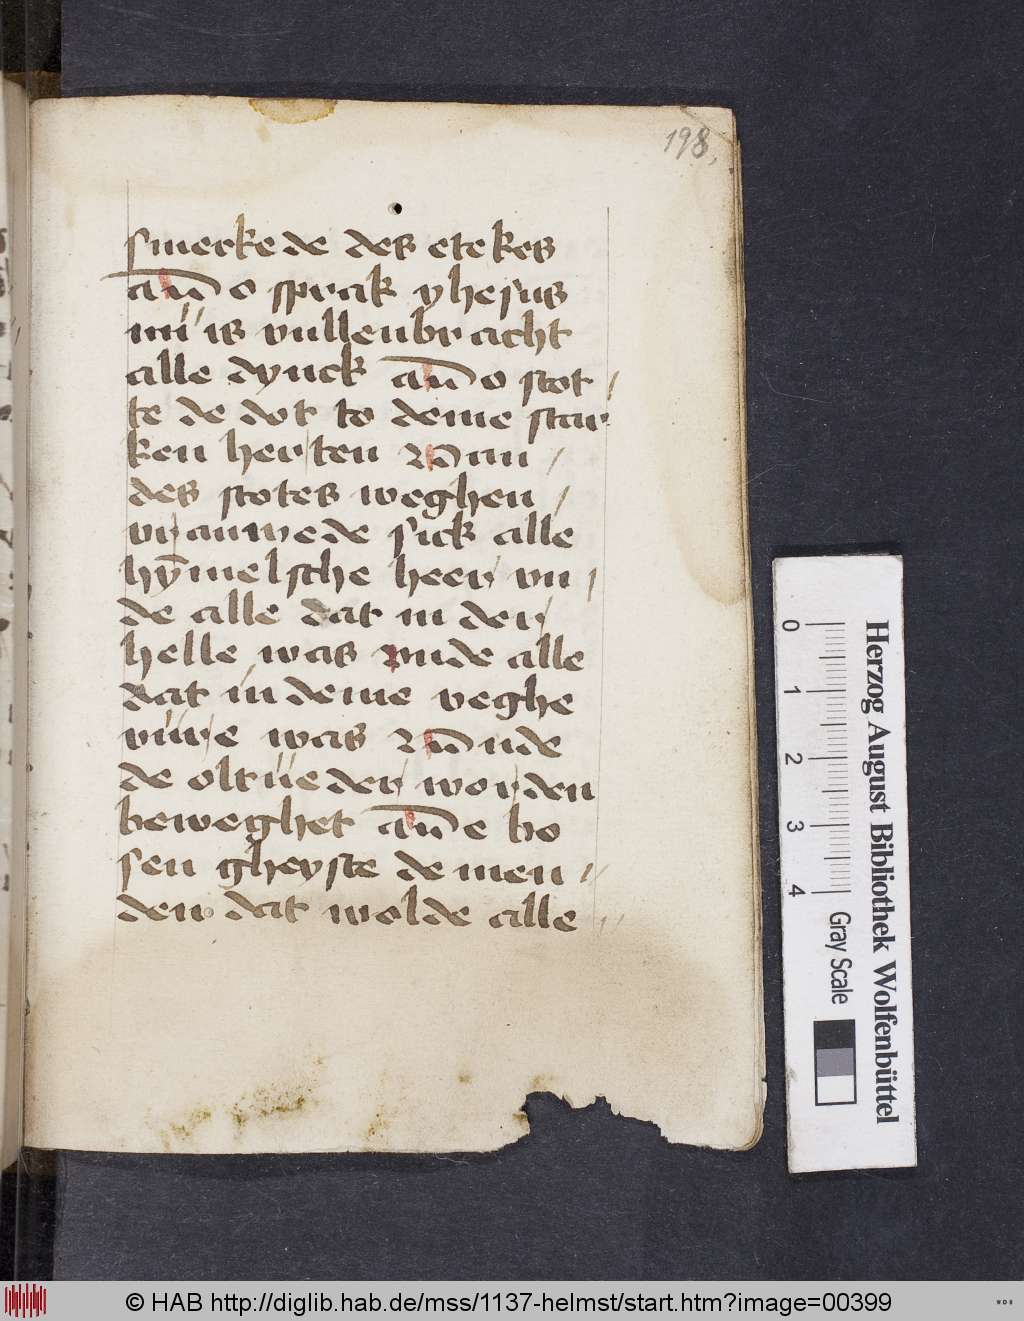 198,
smerke de des etekes
an̄ o sprak yhesus
nu is vullenbracht
alle dynck an̄ o stot /
te de dot to deme star
ken herten Vn̄ an /
des stotes weghen /
vrauwede sick alle
hȳmelsche heer vn /
de alle dat in der
helle was vnde alle
dat in deme veghe
vure was Vn̄ nde
de oltueder worden
beweghet an̄ e bo
sen gheyste de men //
den dat wolde alle //
0 1 2 3 4
Gray Scale
Herzog August Bibliothek Wolfenbüttel
© HAB http://diglib.hab.de/mss/1137-helmst/start.htm?image=00399